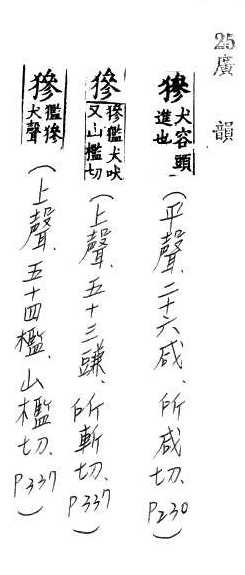 25廣韻
獇 犬容頭進也（平聲、二十六咸、所咸切、P230）
獇 獇㺝犬吠又山檻切（上聲、五十三豏、所斬切、P337）
獇 㺝獇犬聲（上聲、五十四檻、山檻切、P337）